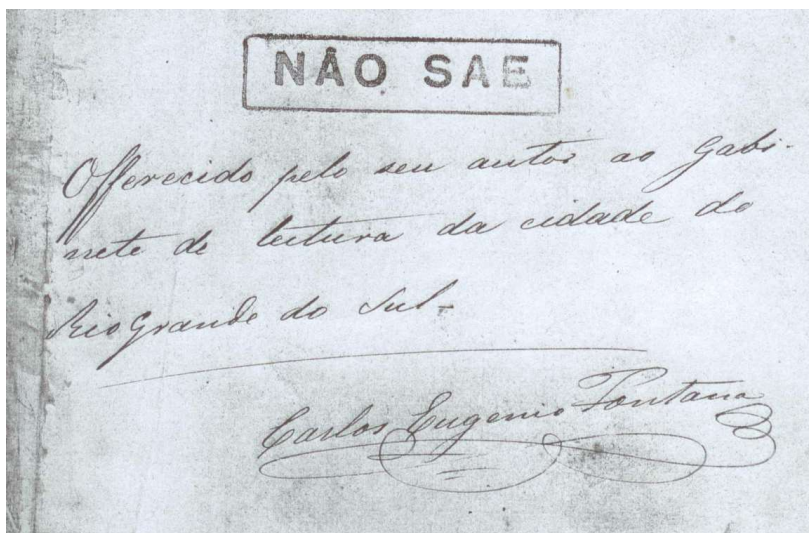 NÃO SAE
Offerecido pelo seu autor ao Gabi-
nete de leitura da cidade do
Rio Grande do Sul-
Carlos Eugenio Fontana